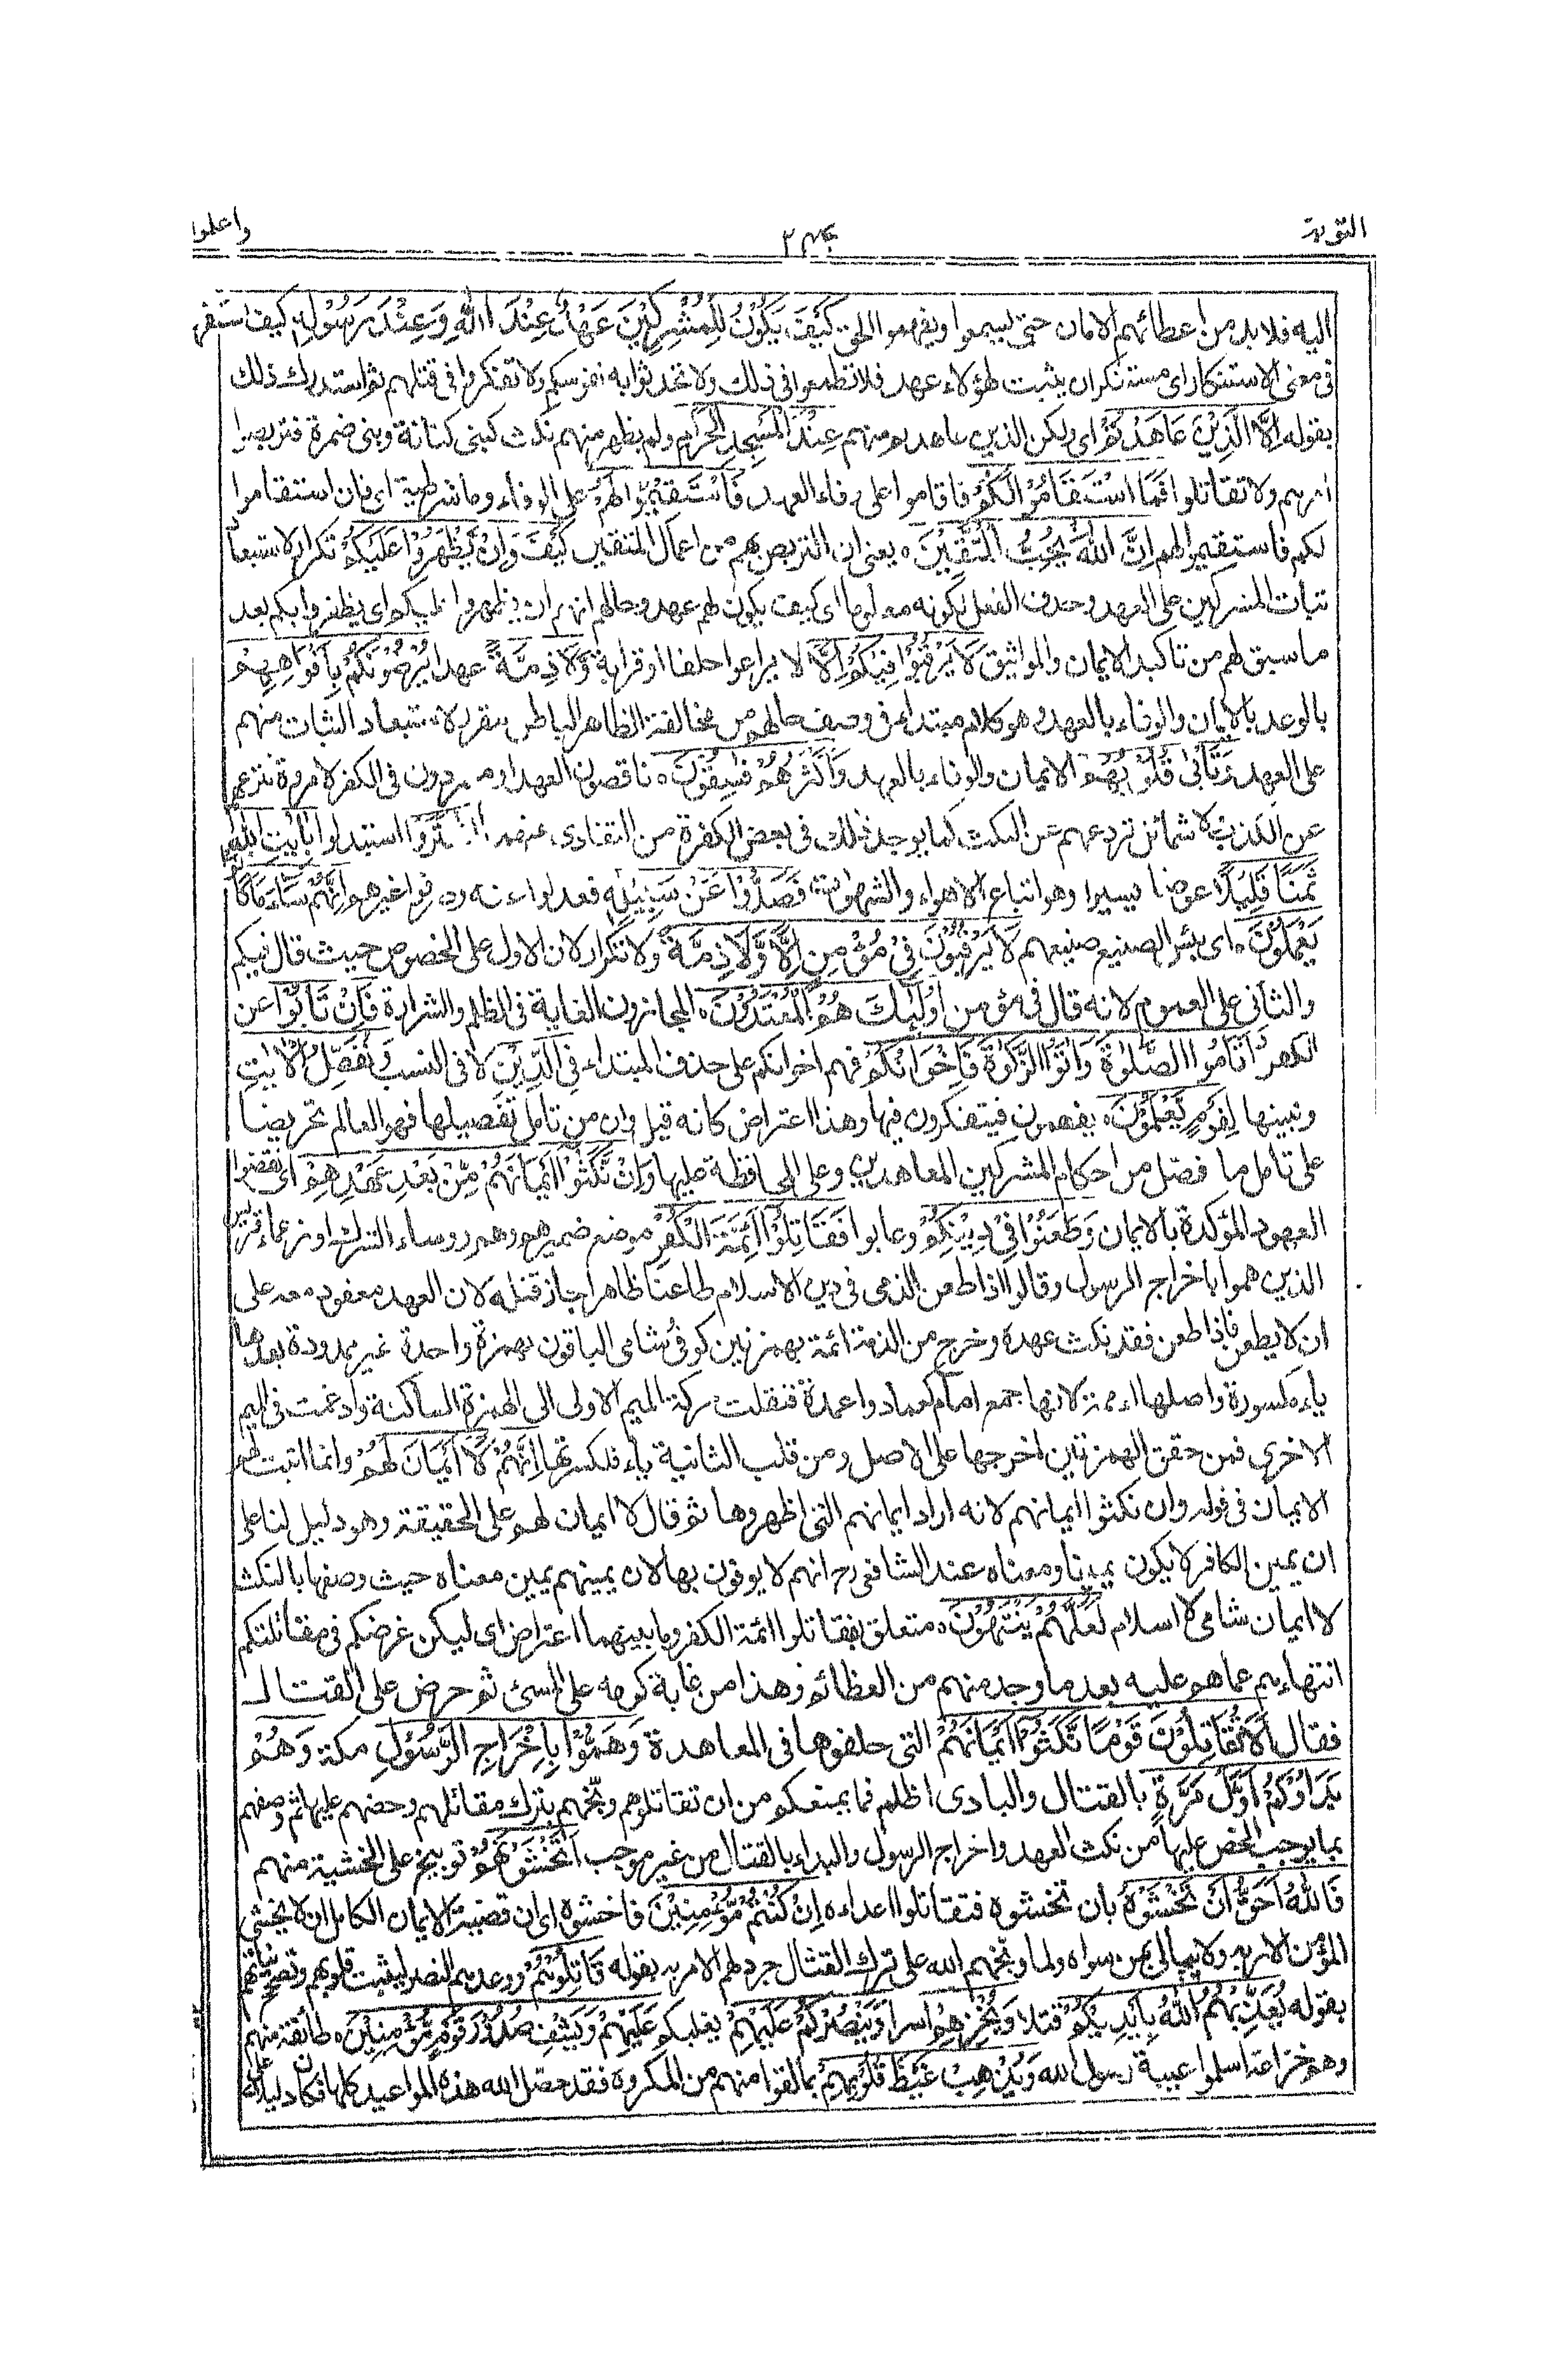 التوبة
واعلموا
اليه فلا بد من اعطائهم الامان حتى يسمعوا ويفهموا الحق كَيْفَ يَكُوْنُ لِلْمُشْرِكِيْنَ عَهْدٌ عِنْدَ اللّٰهِ وَعِنْدَ رَسُوْلِهٖ كيف استفهام
فى معنى الاستنكار اى مستنكر ان يثبت لهؤلاء عهد فلا تطمعوا فى ذلك ولا تحدثوا به نفوسكم ولا تفكروا فى قتلهم ثم استدرك ذلك
بقوله اِلَّا الَّذِيْنَ عَاهَدْتُّمْ اى ولكن الذين عاهدتم منهم عِنْدَ الْمَسْجِدِ الْحَرَامِ ولم يظهر منهم نكث كبنى كنانة وبنى ضمرة فتربصوا
امرهم ولا تقاتلوا فَمَا اسْتَقَامُوْا لَكُمْ فاقاموا على وفاء العهد فَاسْتَقِيْمُوْا لَهُمْ على الوفاء وما شرطية اى فان استقاموا
لكم فاستقيموا لهم اِنَّ اللّٰهَ يُحِبُّ الْمُتَّقِيْنَ ه يعنى ان التربص بهم من اعمال المتقين كَيْفَ وَاِنْ يَّظْهَرُوْا عَلَيْكُمْ تكرار لاستبعاد
ثبات المشركين على العهد وحذف الفعل لكونه معلوما اى كيف يكون لهم عهد وحالهم انهم ان يظهروا عليكم اى يظفروا بكم بعد
ما سبق لهم من تاكيد الايمان والمواثيق لَا يَرْقُبُوْا فِيْكُمْ اِلًّا لا يراعوا حلفا او قرابة وَّلَا ذِمَّةً عهدا يُرْضُوْنَكُمْ بِاَفْوَاهِهِمْ
بالوعد بالايمان والوفاء بالعهد وهو كلام مبتدأ فى وصف حالهم من مخالفة الظاهر الباطن مقرر لاستبعاد الثبات منهم
على العهد وَتَاْبٰى قُلُوْبُهُمْ الايمان والوفاء بالعهد وَاَكْثَرُهُمْ فٰسِقُوْنَ ه ناقضون العهد او متمردون فى الكفر لا مروة تزعهم
عن الكذب ولا شمائل تردعهم عن النكث كما يوجد ذلك فى بعض الكفرة من التفادى عنهما اِشْتَرَوْا استبدلوا بِاٰيٰتِ اللّٰهِ
ثَمَنًا قَلِيْلًا عرضا يسيرا وهو اتباع الاهواء والشهوات فَصَدُّوْا عَنْ سَبِيْلِهٖ فعدلوا عنه وصرفوا غيرهم اِنَّهُمْ سَآءَ مَا كَانُوْا
يَعْمَلُوْنَ ه اى بئس الصنيع صنيعهم لَا يَرْقُبُوْنَ فِيْ مُؤْمِنٍ اِلًّا وَّلَا ذِمَّةً ولا تكرار لان الاول على الخصوص حيث قال فيكم
والثانى على العموم لانه قال فى مؤمن اُولٰٓئِكَ هُمُ الْمُعْتَدُوْنَ ه المجاوزون الغاية فى الظلم والشرارة فَاِنْ تَابُوْا عن
الكفر وَاَقَامُوا الصَّلٰوةَ وَاٰتَوُا الزَّكٰوةَ فَاِخْوَانُكُمْ فهم اخوانكم على حذف المبتداء فِى الدِّيْنِ لا فى النسب وَنُفَصِّلُ الْاٰيٰتِ
ونبينها لِقَوْمٍ يَّعْلَمُوْنَ ه يفهمون فيتفكرون فيها وهذا اعتراض كانه قيل وان من تامل تفصيلها فهو العالم تحريضا
على تامل ما فصل من احكام المشركين المعاهدين وعلى المحافظة عليها وَاِنْ نَّكَثُوْٓا اَيْمَانَهُمْ مِّنْ بَعْدِ عَهْدِهِمْ اى نقضوا
العهود المؤكدة بالايمان وَطَعَنُوْا فِيْ دِيْنِكُمْ وعابوا فَقَاتِلُوْٓا اَئِمَّةَ الْكُفْرِ موضع ضميرهم وهم رؤساء الشرك او زعماء قريش
الذين هموا باخراج الرسول وقالوا اذا طعن الذمى فى دين الاسلام طاعنا ظاهرا جاز قتله لان العهد معقود معه على
ان لا يطعن فاذا طعن فقد نكث عهده وخرج من الذمة ائمة بهمزتين كوفى وشامى الباقون بهمزة واحدة غير ممدودة بعدها
ياء مكسورة واصلها اءممة لانها جمع امام كعماد واعمدة فنقلت حركة الميم الاولى الى الهمزة الساكنة وادغمت فى الميم
الاخرى فمن حقق الهمزتين اخرجها على الاصل ومن قلب الثانية ياء فلكسرتها اِنَّهُمْ لَآ اَيْمَانَ لَهُمْ وانما اثبت لهم
الايمان فى قوله وان نكثوا ايمانهم لانه اراد ايمانهم التى اظهروها ثم قال لا ايمان لهم على الحقيقة وهو دليل لنا على
ان يمين الكافر لا يكون يمينا ومعناه عند الشافعى رح انهم لا يوفون بها لان يمينهم يمين معناه حيث وصفها بالنكث
لا ايمان شامى لا اسلام لَعَلَّهُمْ يَنْتَهُوْنَ ه متعلق بفقاتلوا ائمة الكفر وما بينهما اعتراض اى ليكن غرضكم فى مقاتلتكم
انتهاءهم عما هم عليه بعد ما وجد منهم من العظائم وهذا من غاية كرمه على المسئ ثم حرض على القتال
فقال اَلَا تُقَاتِلُوْنَ قَوْمًا نَّكَثُوْٓا اَيْمَانَهُمْ التى حلفوها فى المعاهدة وَهَمُّوْا بِاِخْرَاجِ الرَّسُوْلِ مكة وَهُمْ
بَدَءُوْكُمْ اَوَّلَ مَرَّةٍ بالقتال والبادى اظلم فما يمنعكم من ان تقاتلوهم وبخهم بترك مقاتلهم وحضهم عليها ثم وصفهم
بما يوجب الحض عليها من نكث العهد واخراج الرسول والبداء بالقتال من غير موجب اَتَخْشَوْنَهُمْ توبيخ على الخشية منهم
فَاللّٰهُ اَحَقُّ اَنْ تَخْشَوْهُ بان تخشوه فتقاتلوا اعداءه اِنْ كُنْتُمْ مُّؤْمِنِيْنَ فاخشوه اى ان قضية الايمان الكامل ان لا يخشى
المؤمن الا ربه ولا يبالى بمن سواه ولما وبخهم الله على ترك القتال جرد لهم الامر به بقوله قَاتِلُوْهُمْ ووعدهم النصر ليثبت قلوبهم وتصح نياتهم
بقوله يُعَذِّبْهُمُ اللّٰهُ بِاَيْدِيْكُمْ قتلا وَيُخْزِهِمْ اسرا وَيَنْصُرْكُمْ عَلَيْهِمْ يغلبكم عَلَيْهِمْ وَيَشْفِ صُدُوْرَ قَوْمٍ مُّؤْمِنِيْنَ ه طائفة منهم
وهم خزاعة اسلموا عيبة رسول الله وَيُذْهِبْ غَيْظَ قُلُوْبِهِمْ بما لقوا منهم من المكروه فقد حصل الله هذه المواعيد كلها فكان دليلا على